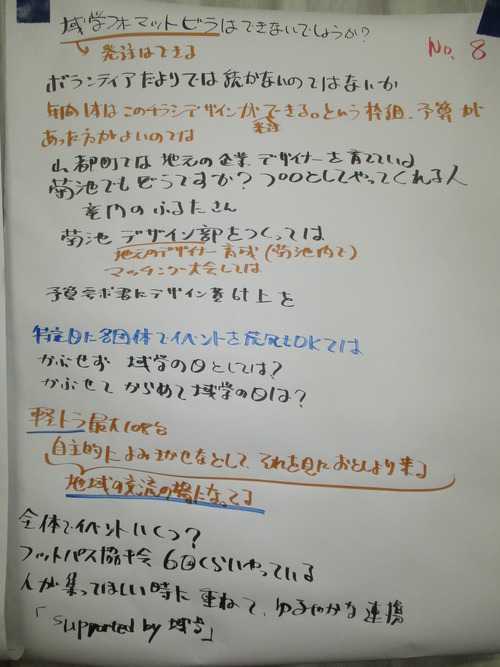 域学フォマットビラはできないでしょうか?
No. 8
→発注はできる
ボランティアたよりでは続かないのではないか
年間1体はこのチラシデザインができる。という枠組、予算が
発注
あった方がよいのでは
山都町では地元の企業、デザイナーを育てている
菊池でもどうですか? フロロとしてやってくれる人
竜門のふるたさん
菊池 デザイン部をつくっては
地元のデザイナー育成(菊池内で)
マッチング大会しては
予算要求書にデザイン費計上を
特定日に各団体でイベントを もOKでは
かぶせず 域学の日としては?
かぶせて からめて域学の日は?
軽トラ最大108台
自主的によみきかせなどして、それを見におとしより来る
地域の交流の場になってる
全体でイベントいくつ?
フットパス協会 6回くらいやっている
人が集ってほしい時に重ねて、ゆるやかな連携
「supported by 域学」